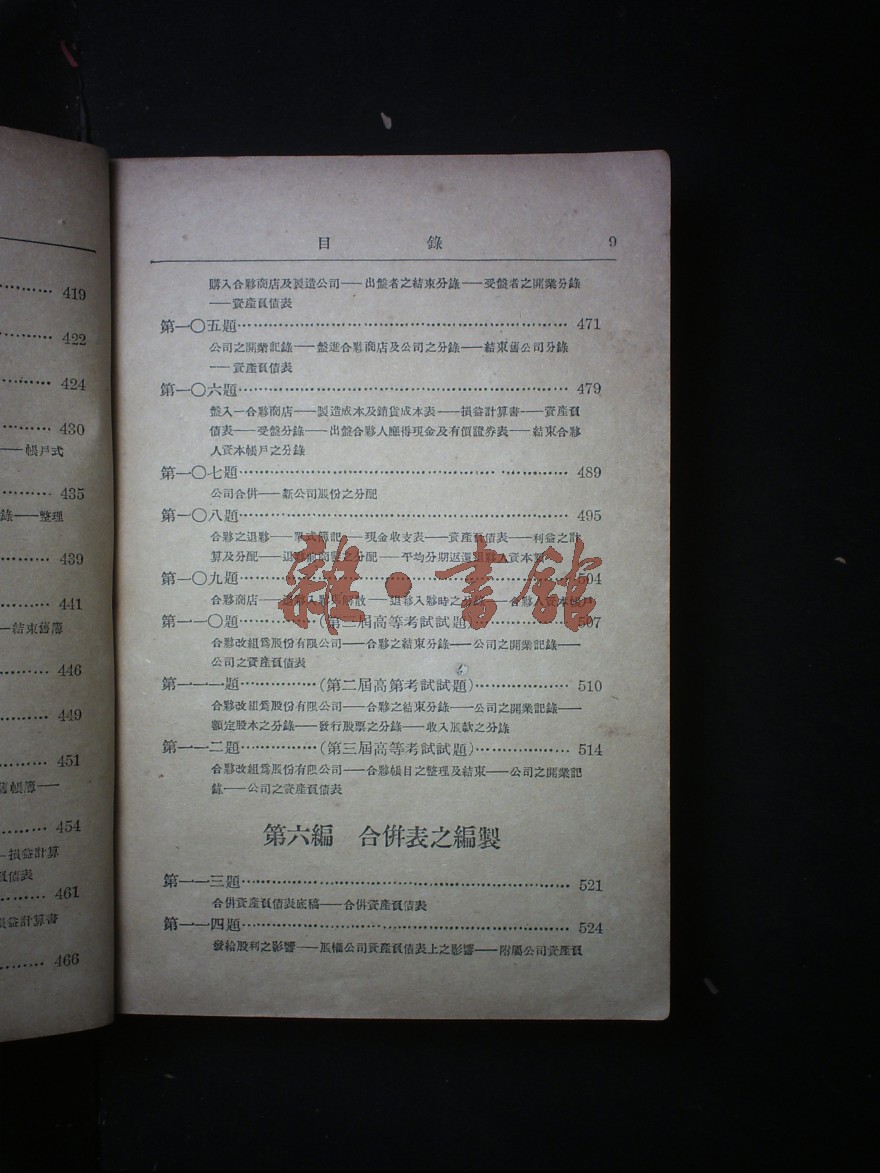 419
422
424
430
——帳戶式
435
錄——整理
439
441
—結束舊簿
446
449
451
舊帳簿——
454
—損益計算
負債表
461
損益計算書
466
目 錄 9
購入合夥商店及製造公司——出盤者之結束分錄——受盤者之開業分錄
——資產負債表
第一〇五題 471
公司之開業記錄——盤進合夥商店及公司之分錄——結束舊公司分錄
——資產負債表
第一〇六題 479
盤入一合夥商店——製造成本及銷貨成本表——損益計算書——資產負
債表——受盤分錄——出盤合夥人應得現金及有價證券表——結束合夥
人資本帳戶之分錄
第一〇七題 489
公司合併——新公司股份之分配
第一〇八題 495
合夥之退夥——單式簿記——現金收支表——資產負債表——利益之計
算及分配——退夥時商譽之分配——平均分期返還退夥人資本額
第一〇九題 504
合夥商店——退夥入夥與解散——退夥入夥時之分錄——合夥人資本帳戶
第一一〇題 (第二屆高等考試試題) 507
合夥改組為股份有限公司——合夥之結束分錄——公司之開業記錄——
公司之資產負債表
第一一一題 (第二屆高第考試試題) 510
合夥改組為股份有限公司——合夥之結束分錄——公司之開業記錄——
額定股本之分錄——發行股票之分錄——收入股款之分錄
第一一二題 (第三屆高等考試試題) 514
合夥改組為股份有限公司——合夥帳目之整理及結束——公司之開業記
錄——公司之資產負債表
第六編 合併表之編製
第一一三題 521
合併資產負債表底稿——合併資產負債表
第一一四題 524
發給股利之影響——股權公司資產負債表上之影響——附屬公司資產負
雜·書館